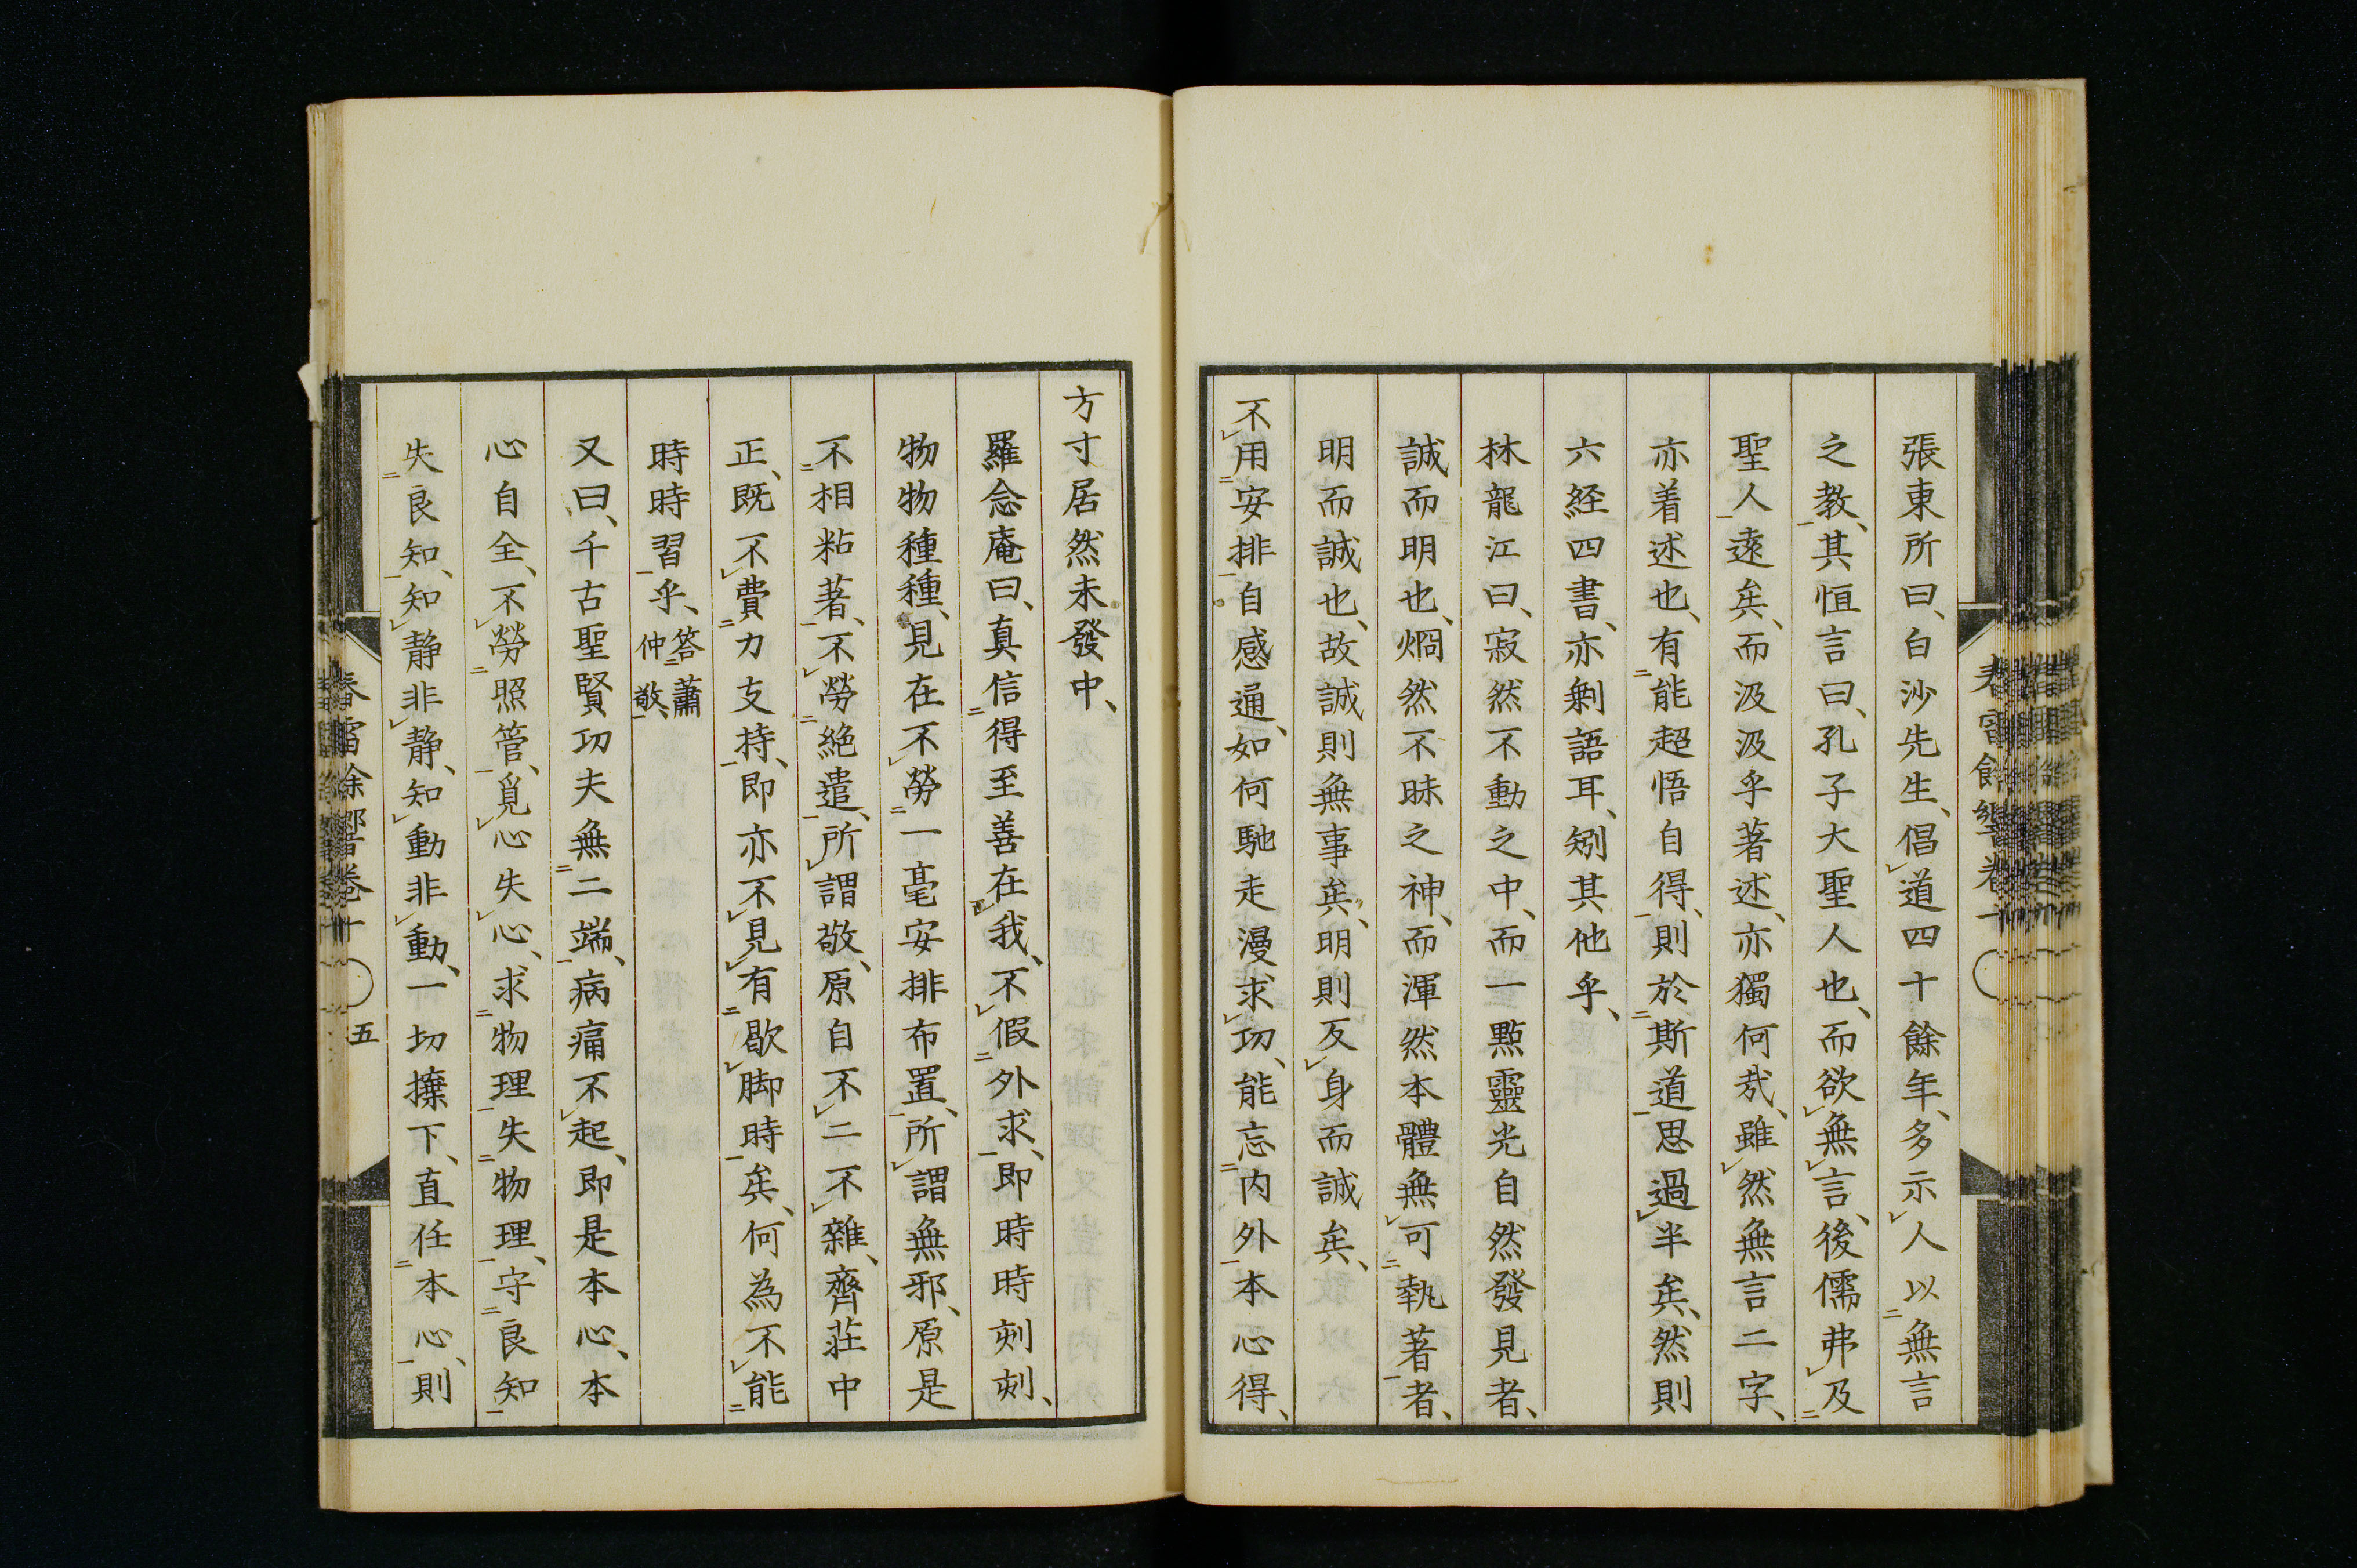 張東所曰、白沙先生、倡道四十餘年、多示人以無言
之教、其恒言曰、孔子大聖人也、而欲無言、後儒弗及
聖人遠矣、而汲汲乎著述、亦獨何哉、雖然無言二字、
亦着述也、有能超悟自得、則於斯道思過半矣、然則
六経四書、亦剰語耳、矧其他乎、
林龍江曰、寂然不動之中、而一點靈光自然發見者、
誠而明也、烱然不昧之神、而渾然本體無可執著者、
明而誠也、故誠則無事矣、明則反身而誠矣、
不用安排自感通、如何馳走漫求功、能忘内外本心得、
方寸居然未發中、
羅念庵曰、真信得至善在我、不假外求、即時時刻刻、
物物種種、見在不勞一毫安排布置、所謂無邪、原是
不相粘著、不勞絶遣、所謂敬、原自不二不雜、齊莊中
正、既不費力支持、即亦不見有歇脚時矣、何為不能
時時習乎、答蕭仲敬、
又曰、千古聖賢功夫無二端、病痛不起、即是本心、本
心自全、不勞照管、覓心失心、求物理失物理、守良知
失良知、知静非静、知動非動、一切撁下、直任本心、則
春雷餘響巻十
五